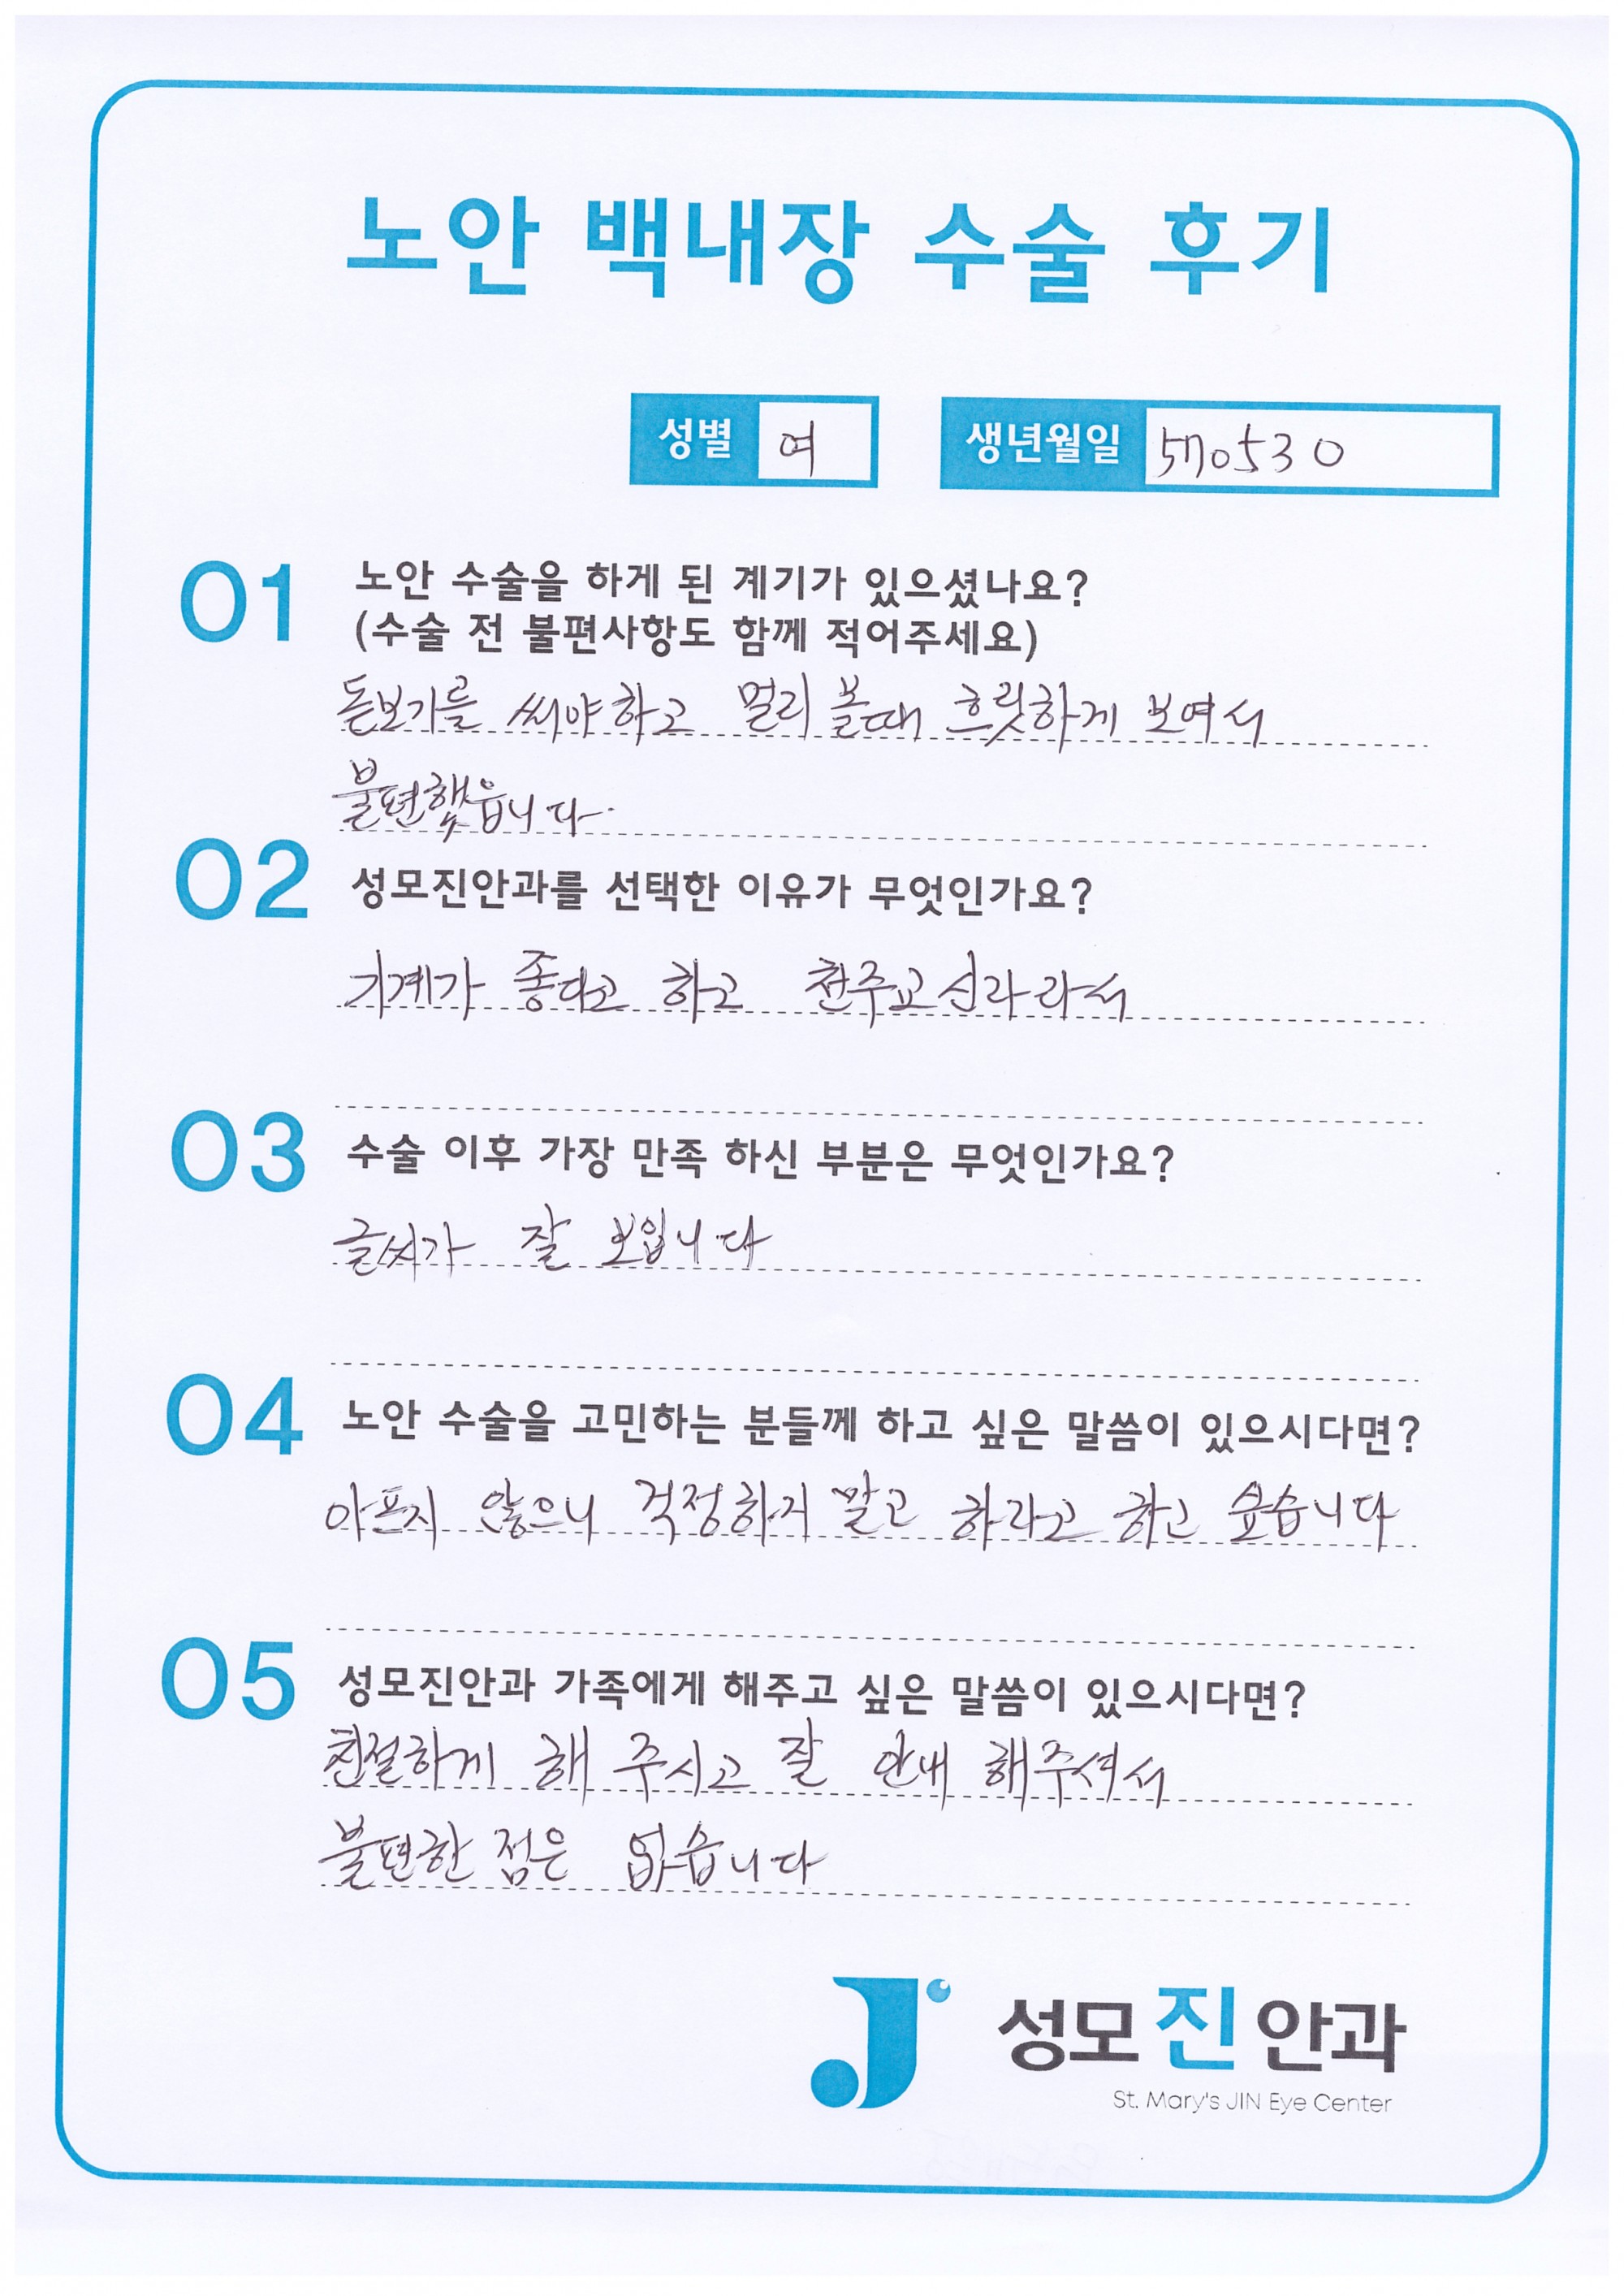 노안 백내장 수술 후기
성별 여 생년월일 570530
01 노안 수술을 하게 된 계기가 있으셨나요?
(수술 전 불편사항도 함께 적어주세요)
돋보기를 써야하고 멀리 볼때 흐릿하게 보여서
불편했읍니다.
02 성모진안과를 선택한 이유가 무엇인가요?
기계가 좋다고 하고 천주교신자라서
03 수술 이후 가장 만족 하신 부분은 무엇인가요?
글씨가 잘 보입니다
04 노안 수술을 고민하는 분들께 하고 싶은 말씀이 있으시다면?
아프지 않으니 걱정하지 말고 하라고 하고 싶습니다
05 성모진안과 가족에게 해주고 싶은 말씀이 있으시다면?
친절하게 해 주시고 잘 안내 해주셔서
불편한 점은 없습니다
성모진안과
St. Mary's JIN Eye Center